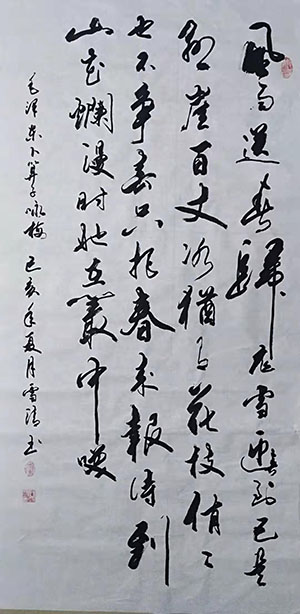 風雨送春歸飛雪迎春到已是
懸崖百丈冰猶有花枝俏々
也不争春只把春来報待到
山花爛漫时她在叢中咲
毛泽东卜算子咏梅 己亥年夏月雪清书